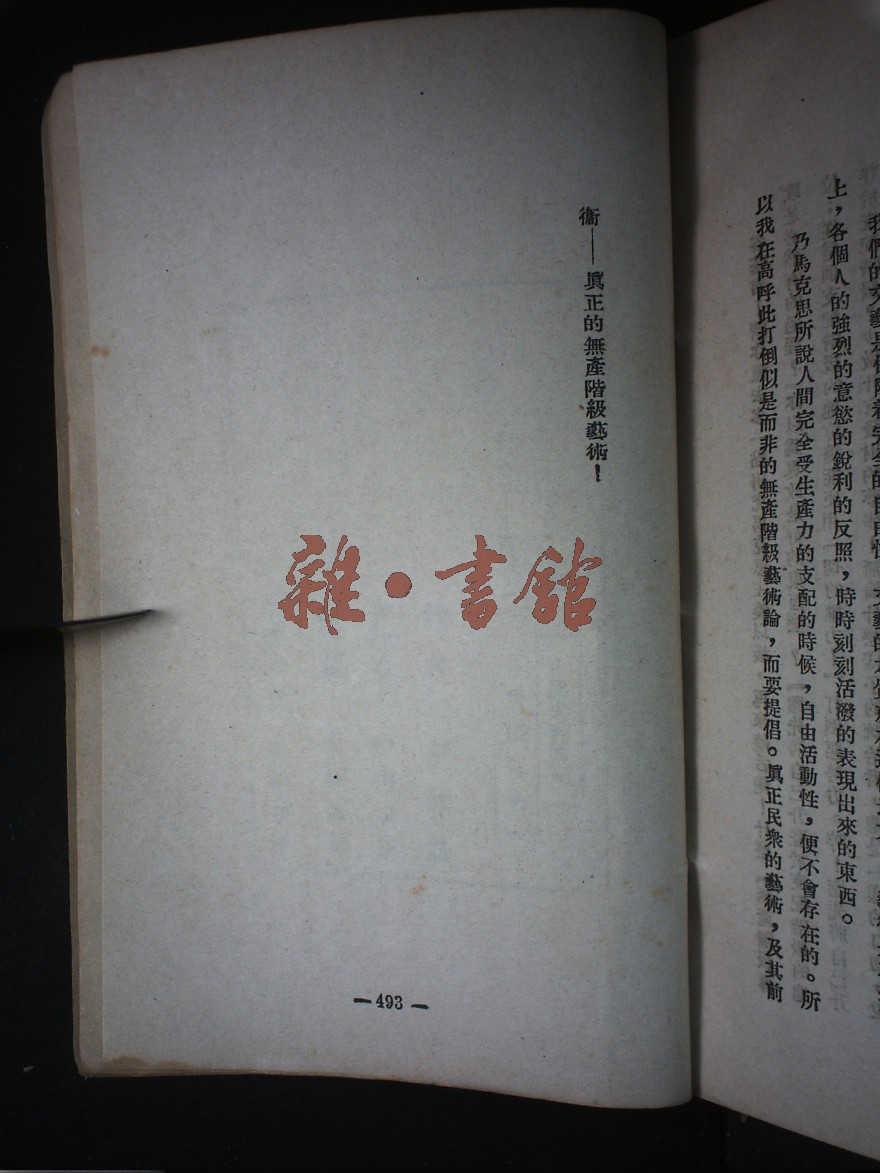 我們的文藝是
上，各個人的強烈的意慾的銳利的反照，時時刻刻活潑的表現出來的東西。
乃馬克思所說人間完全受生產力的支配的時候，自由活動性，便不會存在的。所
以我在高呼此打倒似是而非的無產階級藝術論，而要提倡。眞正民衆的藝術，及其前
衞——眞正的無產階級藝術！
雜·書館
—493—